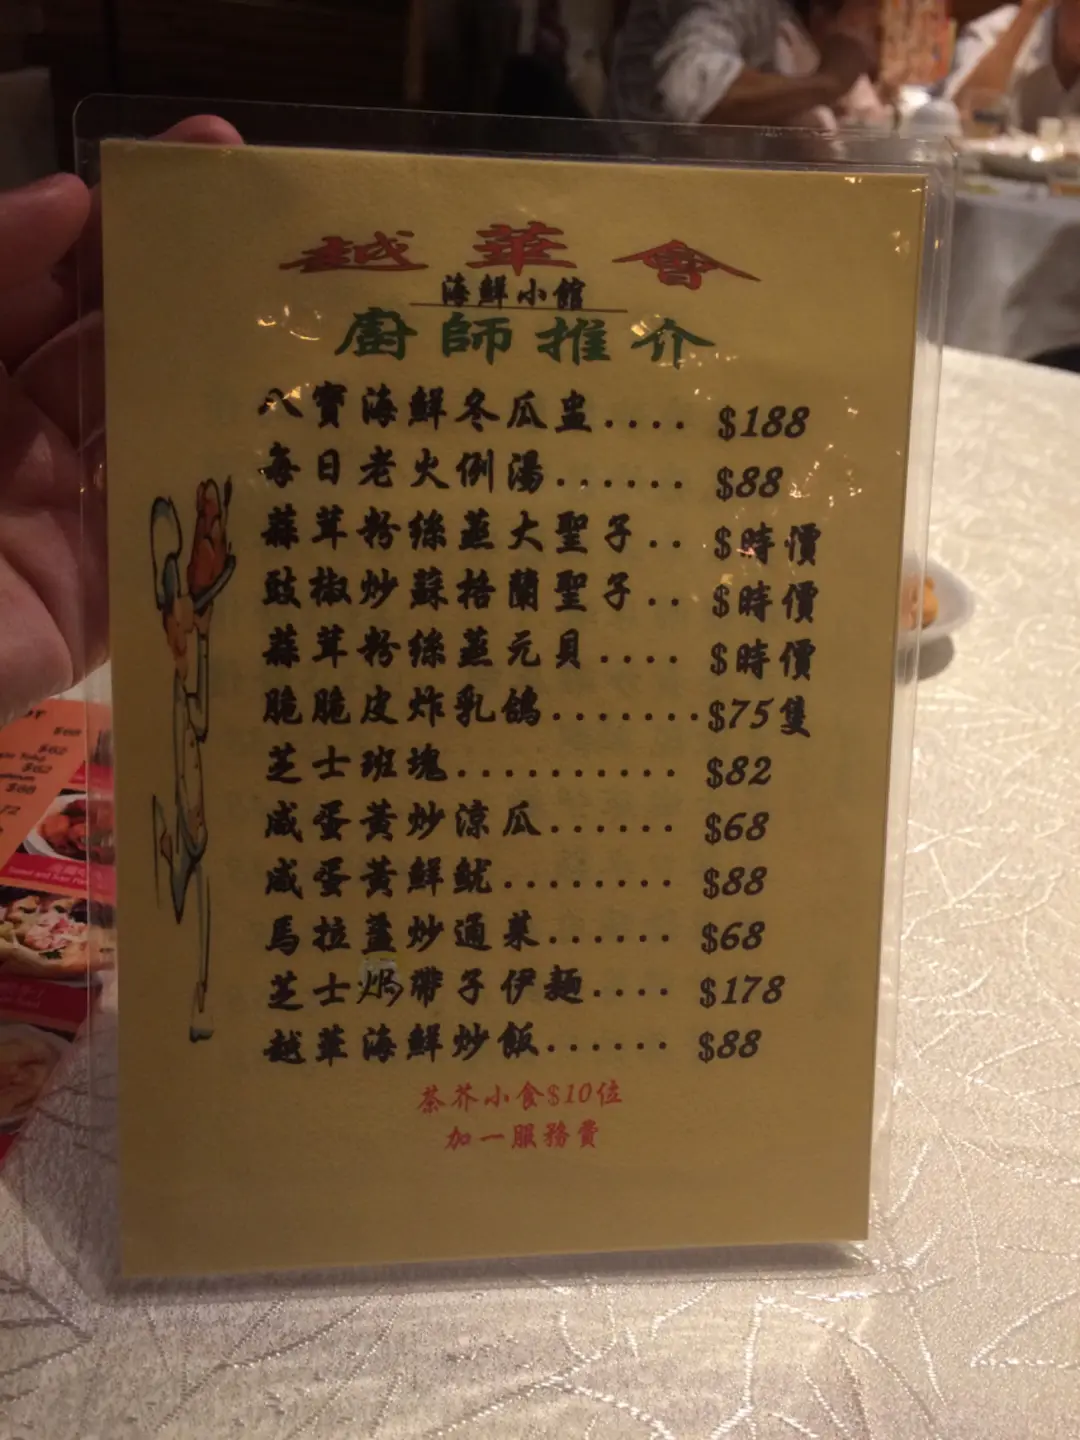 越華會
海鮮小館
廚師推介
八寶海鮮冬瓜盅.... $188
每日老火例湯...... $88
蒜茸粉絲蒸大聖子.. $時價
豉椒炒蘇格蘭聖子.. $時價
蒜茸粉絲蒸元貝.... $時價
脆脆皮炸乳鴿.......$75隻
芝士班塊.......... $82
咸蛋黃炒涼瓜...... $68
咸蛋黃鮮魷........ $88
馬拉盞炒通菜...... $68
芝士焗帶子伊麵.... $178
越華海鮮炒飯...... $88
茶芥小食$10位
加一服務費
$68
$62
$62
$68